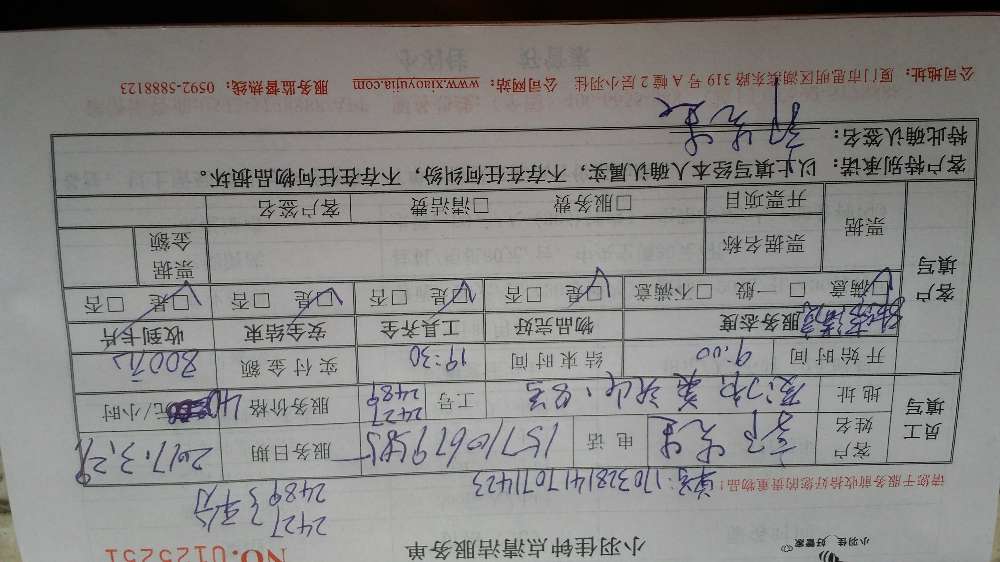 小羽佳 好管家
小羽佳钟点清洁服务单
NO.0125251
2427
2489 平分
请您于服务前收拾好您的贵重物品！
单号:170328141707423
员工填写
客户姓名 先生 电话 服务日期 2017.3.29
地址 工号 2427 2489 服务价格 40 元/小时
开始时间 9:00 结束时间 19:30 实付金额 800元
客户填写
服务态度 物品完好 工具齐全 安全结束 收到卡片
□满意 □一般 □不满意 □是 □否 □是 □否 □是 □否 □是 □否
票据 票据名称 票据金额
开票项目 □服务费 □清洁费 客户签名
客户特别承诺：以上填写经本人确认属实，不存在任何纠纷，不存在任何物品损坏。
特此确认签名： 先生
公司地址：厦门市思明区湖滨东路 319 号 A 幢 2 层小羽佳 公司网站：www.xiaoyujia.com 服务监督热线：0592-5888123